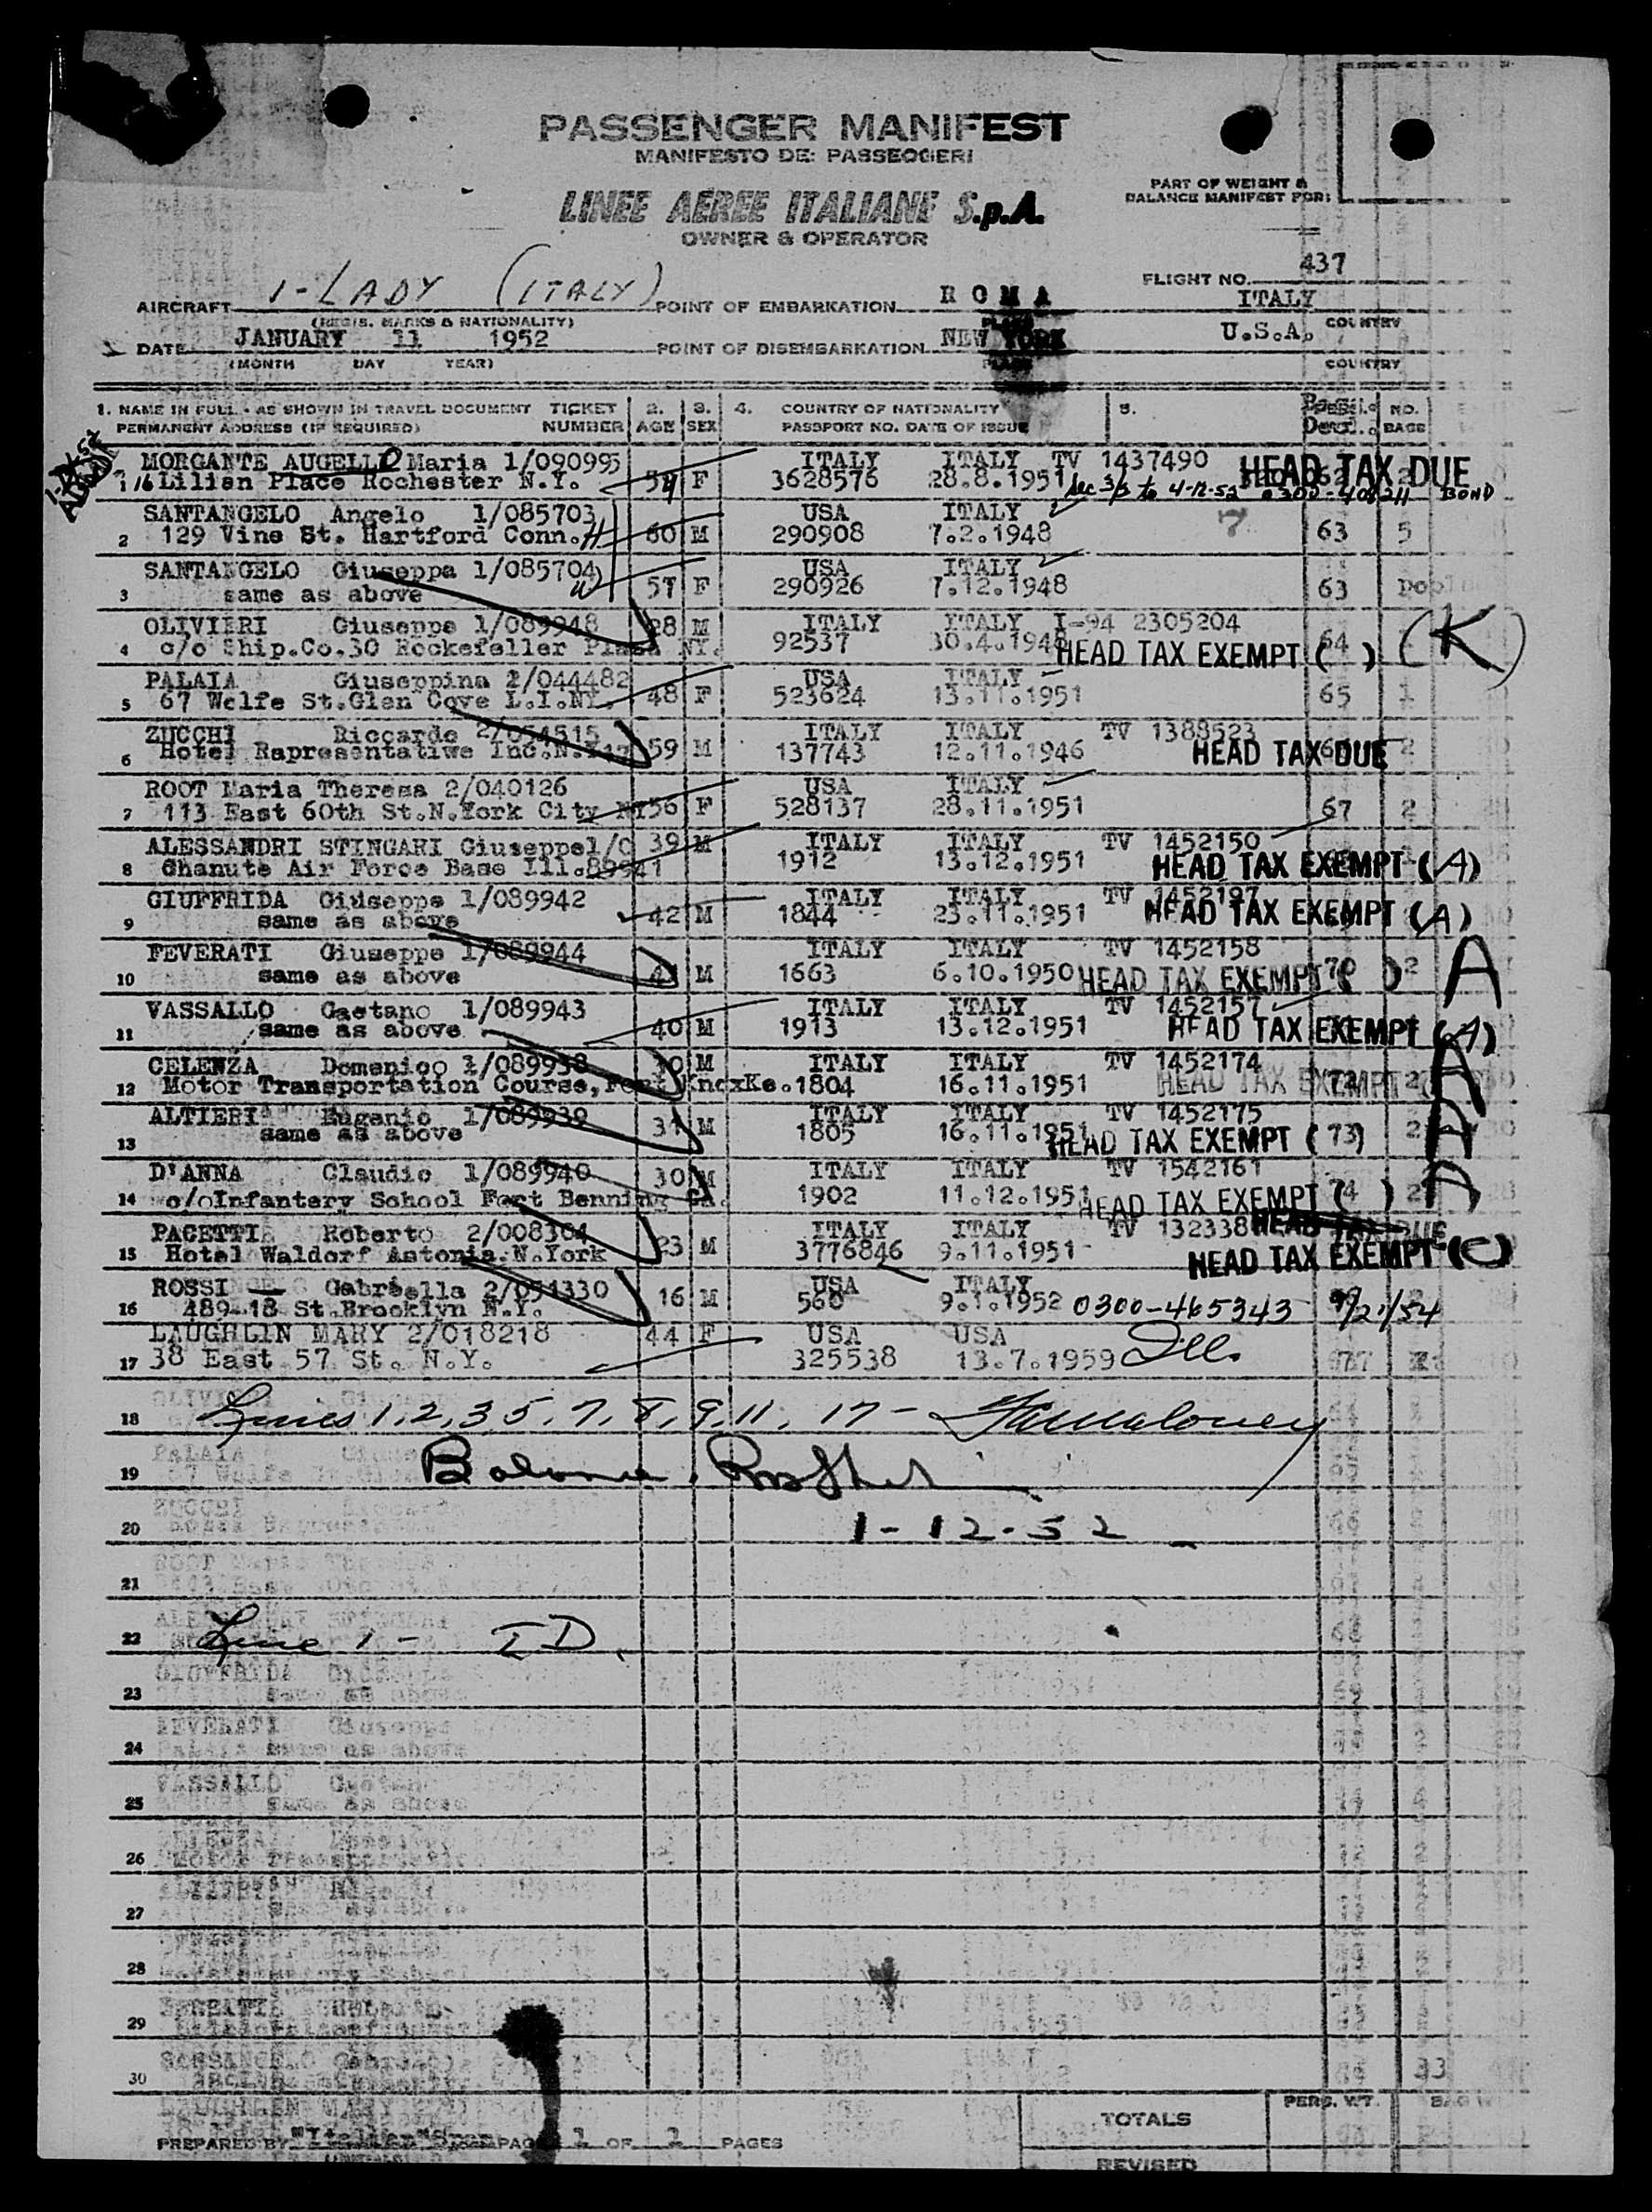 PASSENGER MANIFEST
MANIFESTO DEI PASSEGGERI
LINEE AEREE ITALIANE S.p.A.
OWNER & OPERATOR
PART OF WEIGHT &
BALANCE MANIFEST FOR:
FLIGHT NO. 437
AIRCRAFT I-LADY (ITALY) POINT OF EMBARKATION ROMA ITALY
(REGIS. MARKS & NATIONALITY) PLACE COUNTRY
DATE JANUARY 11 1952 POINT OF DISEMBARKATION NEW YORK U.S.A.
(MONTH DAY YEAR) PLACE COUNTRY
1. NAME IN FULL - AS SHOWN IN TRAVEL DOCUMENT TICKET 2. 3. 4. COUNTRY OF NATIONALITY 5. NO.
PERMANENT ADDRESS (IF REQUIRED) NUMBER AGE SEX PASSPORT NO. DATE OF ISSUE BAGS
MORGANTE AUGELLO Maria 1/090995 ITALY ITALY TV 1437490 HEAD TAX DUE
1 16 Lilian Place Rochester N.Y. 54 F 3628576 28.8.1951 Sec 3/3 to 4-12-52 0300-408211 BOND
SANTANGELO Angelo 1/085703 USA ITALY
2 129 Vine St. Hartford Conn. 60 M 290908 7.2.1948 7 63 5
SANTANGELO Giuseppa 1/085704 USA ITALY
3 same as above 57 F 290926 7.12.1948 63
OLIVIERI Giuseppe 1/089948 28 M ITALY ITALY I-94 2305204
4 c/o Ship.Co.30 Rockefeller Plaza NY. 92537 30.4.1948 HEAD TAX EXEMPT ( ) 64 (K)
PALAIA Giuseppina 2/044482 USA ITALY
5 67 Wolfe St.Glen Cove L.I.NY. 48 F 523624 13.11.1951 65 1
ZUCCHI Riccardo 2/054515 ITALY ITALY TV 1388523
6 Hotel Rapresentative Inc.N.Y. 59 M 137743 12.11.1946 HEAD TAX DUE 2
ROOT Maria Theresa 2/040126 USA ITALY
7 113 East 60th St.N.York City NY 56 F 528137 28.11.1951 67 2
ALESSANDRI STINGARI Giuseppe1/0 39 M ITALY ITALY TV 1452150
8 Chanute Air Force Base Ill.89941 1912 13.12.1951 HEAD TAX EXEMPT (A)
GIUFFRIDA Giuseppe 1/089942 ITALY ITALY TV 1452197
9 same as above 42 M 1844 23.11.1951 HEAD TAX EXEMPT (A)
FEVERATI Giuseppe 1/089944 ITALY ITALY TV 1452158
10 same as above 41 M 1663 6.10.1950 HEAD TAX EXEMPT ( ) 70 2 A
VASSALLO Gaetano 1/089943 ITALY ITALY TV 1452157
11 same as above 40 M 1913 13.12.1951 HEAD TAX EXEMPT (A)
CELENZA Domenico 1/089938 30 M ITALY ITALY TV 1452174
12 Motor Transportation Course, Fort KnoxKe. 1804 16.11.1951 HEAD TAX EXEMPT 72 2 A
ALTIERI Eugenio 1/089939 ITALY ITALY TV 1452175
13 same as above 31 M 1805 16.11.1951 HEAD TAX EXEMPT ( ) 73 2 A
D'ANNA Claudio 1/089940 30 M ITALY ITALY TV 1542161
14 c/oInfantery School Fort Benning GA. 1902 11.12.1951 HEAD TAX EXEMPT ( ) 74 2 A
PACETTI Roberto 2/008304 ITALY ITALY TV 132338 HEAD TAX DUE
15 Hotel Waldorf Astoria.N.York 23 M 3776846 9.11.1951 HEAD TAX EXEMPT (C)
ROSSI Gabriella 2/051330 USA ITALY
16 489-18 St.Brooklyn N.Y. 16 M 560 9.1.1952 0300-465343 9/21/54
LAUGHLIN MARY 2/018218 44 F USA USA
17 38 East 57 St. N.Y. 325538 13.7.1959 Ill. 77
18 Lines 1,2,3,5,7,8,9,11,17 -
19 Balance
20 1-12-52
21
22 Line 1 - ID
23
24
25
26
27
28
29
30 33
PREPARED BY PAGE 1 OF 1 PAGES
TOTALS PERS. WT. BAG W
REVISED